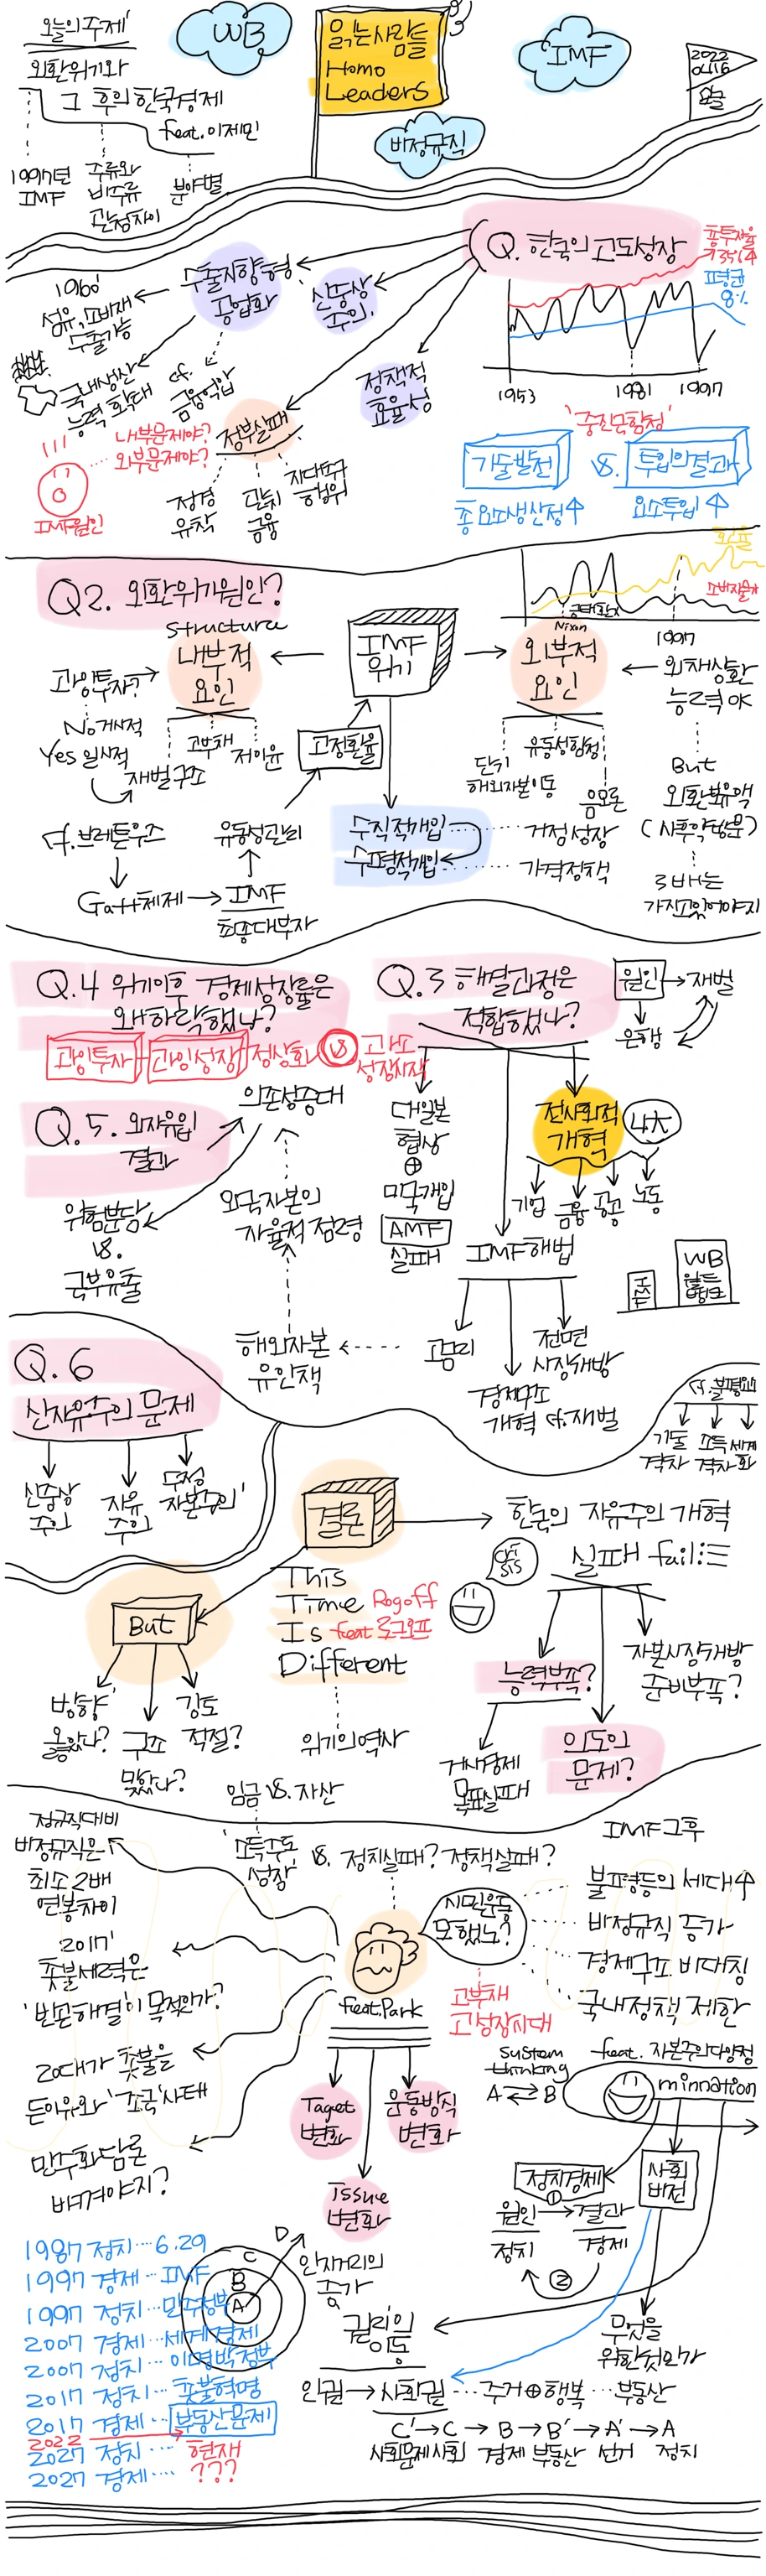 오늘의 주제
외환위기와
그 후의 한국경제
feat. 이제민
1997년
IMF
주류와
비주류
관점차이
분야별
WB
읽는사람들
Homo
Leaders
IMF
비정규직
2022
Q. 한국의 고도성장
총투자율
35%
평균
8%
1953
1981
1997
수출지향형
공업화
신중상
주의
정책적
효율성
1960'
섬유, 소비재
수출가능
국내생산
능력 확대
cf.
금융억압
정부실패
정경
유착
관치
금융
지대추구
행위
내부문제야?
외부문제야?
IMF원인
'중진국함정'
기술발전
vs.
투입의결과
총요소생산성↑
요소투입↑
Q2. 외환위기원인?
환율
소비자물가
Nixon
1997
structure
내부적
요인
IMF
위기
외부적
요인
과잉투자?
No거시적
Yes 일시적
재벌구조
고부채
저이윤
고정환율
단기
해외자본이동
유동성함정
음모론
외채상환
능력 略
But
외환보유액
(사후약방문)
3배는
가지고있어야지
cf. 브레튼우즈
Gatt체제→IMF
최종대부자
유동성관리
수직적개입
수평적개입
거정성장
가격정책
Q.4 위기이후 경제성장률은
왜하락했나?
과잉투자
과잉성장
정상화
VS
과소
성장시작
Q.3 해결과정은
적합했나?
원인→재벌
은행
Q.5. 외자유입
결과
의존성증대
위험분담
vs.
국부유출
외국자본의
자율적 점령
해외자본
유인책
대일본
협상
⊕
미국개입
AMF
실패
전사회적
개혁
4大
기업
금융
공공
노동
IMF해법
고금리
경제구조
개혁 cf.재벌
전면
시장개방
IMF
WB
월드
뱅크
Q.6
신자유주의 문제
신중상
주의
자유
주의
수정
자본주의'
cf. 불평등
기술
격차
소득
격차
세계
화
결론
한국의 자유주의 개혁
실패 fail
crisis
This
Time
Is
Different
Rogoff
feat 로고프
위기의역사
But
방향
옳았나?
구조
맞았나?
강도
적절?
능력부족?
거시경제
목표실패
의도의
문제?
자본시장개방
준비부족?
임금 vs. 자산
'소득주도
성장'
vs. 정치실패? 정책실패?
정규직대비
비정규직은
최소 2배
연봉차이
2017'
촛불세력은
'빈곤해결'이 목적인가?
20대가 촛불을
든이유와 '조국'사태
민주화담론
버려야지?
feat.Park
시민운동
못했나?
고부채
고성장시대
IMF그후
불평등의 세대↑
비정규직 증가
경제구조 비대칭
국내정책 제한
Taget
변화
Issue
변화
운동방식
변화
system
thinking
A⇄B
feat. 자본주의다양성
minnation
정치경제
①
원인→결과
정치
경제
②
사회
비전
무엇을
위한것인가
1987 정치…6.29
1997 경제…IMF
1997 정치…민주정부
2007 경제…세계경제
2007 정치…이명박정부
2017 정치…촛불혁명
2017 경제…부동산문제
2022
현재
2027 정치…
???
2027 경제…
A
B
C
D
일자리의
증가
권리의
이동
인권→사회권…주거⊕행복…부동산
C'→C→B→B'→A'→A
사회문제 사회 경제 부동산 선거 정치